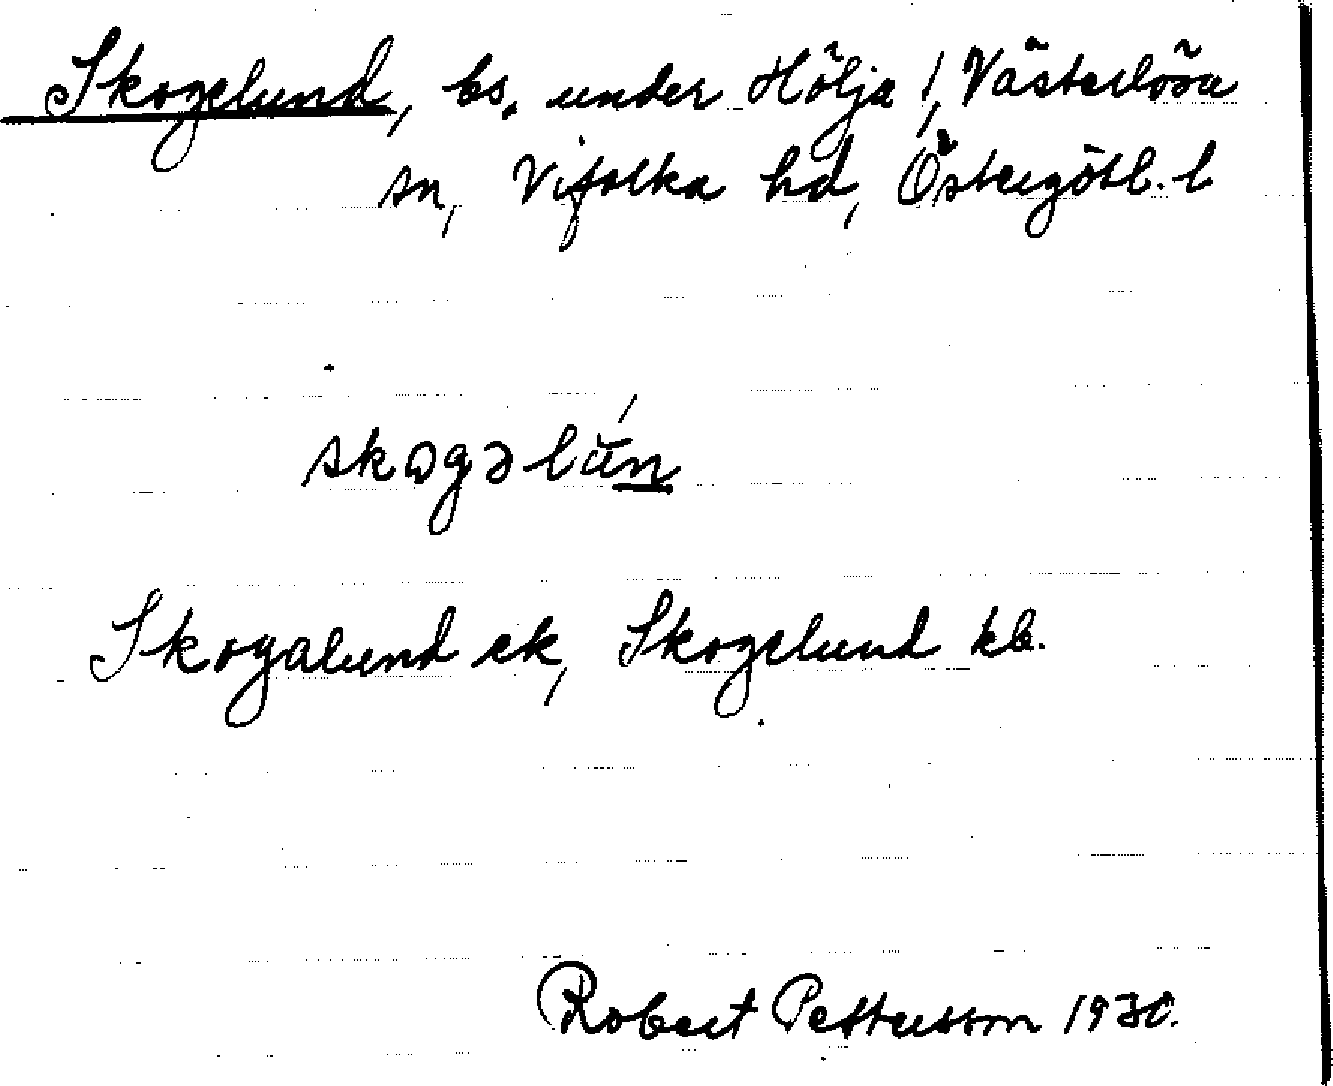 Skogelund, bs. under Hölja !, Västerlösa
sn, Vifolka hd, Östergötl. l
skogəlún
Skogalund ek, Skogelund kb.
Robert Pettersson 1930.